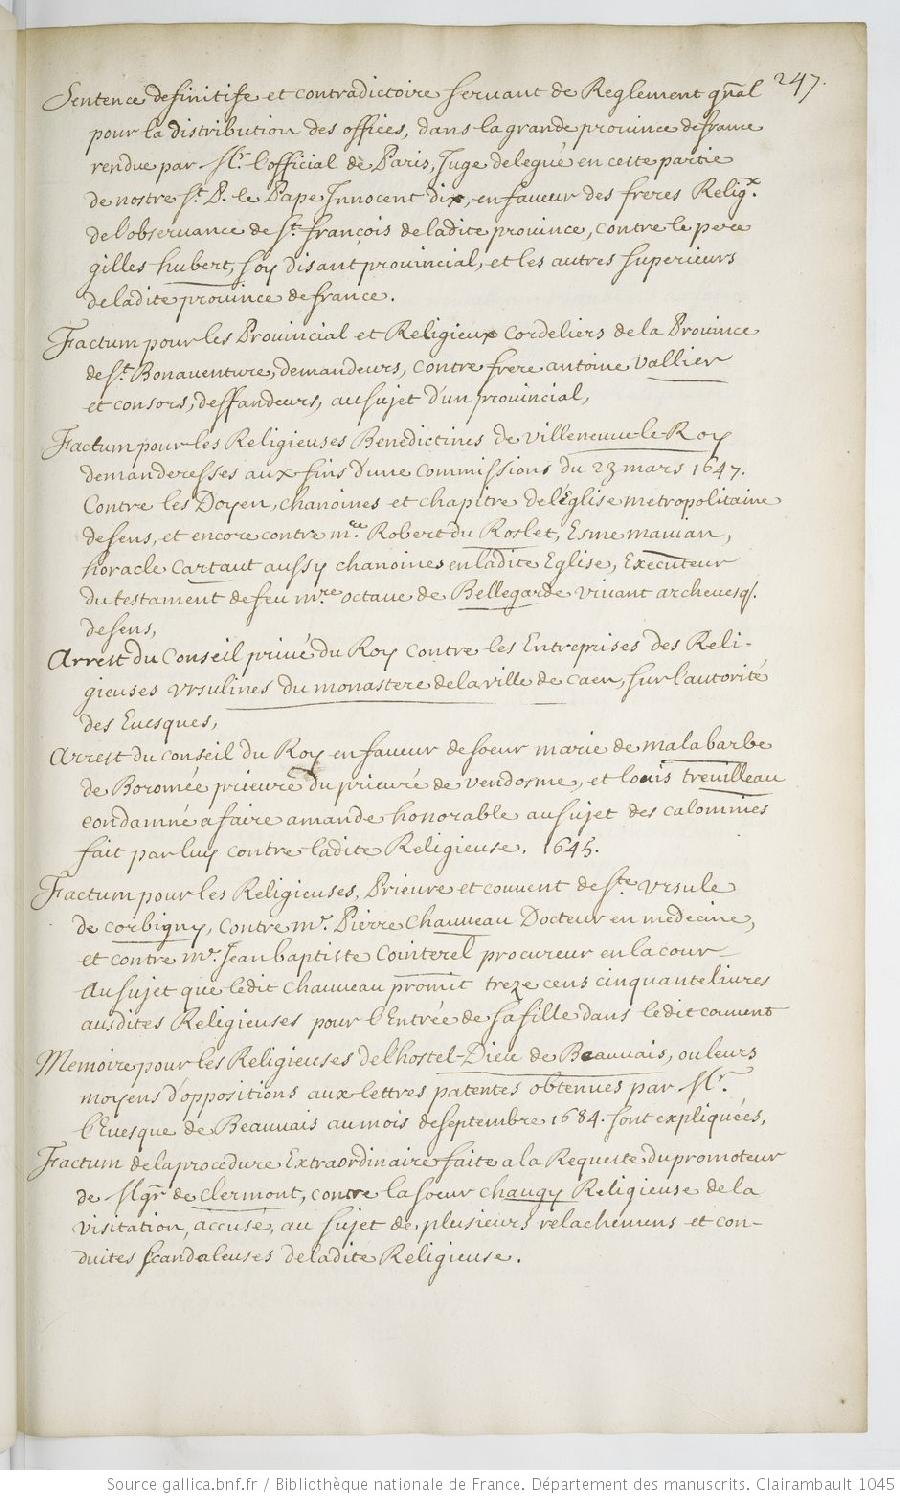 247.
Sentence definitife et contradictoire servant de Reglement gñal
pour la distribution des offices, dans la grande prouince de france
rendue par Mr. l'official de Paris, Juge delegué en cette partie
de nostre St. P. le Pape Innocent dix, en faueur des freres Religx.
de l'obseruance de St. françois de ladite prouince, contre le pere
gilles hubert, soy disant prouincial, et les autres superieurs
de ladite prouince de france.
Factum pour les Prouincial et Religieux Cordeliers de la Prouince
de St. Bonauenture, demandeurs, contre frere antoine Vallier
et consors, deffandeurs, au sujet d'un prouincial,
Factum pour les Religieuses Benedictines de Villeneuue-le-Roy
demanderesses aux fins d'une commissions du 23 mars 1647.
Contre les Doyen, chanoines et chapitre de l'Eglise metropolitaine
de sens, et encore contre me. Robert du Roslet, Esme mauian,
horacle Cartaut aussy chanoines en ladite Eglise, Executeur
du testament de feu mre octaue de Bellegarde viuant archeuesq.
de sens,
Arrest du Conseil priué du Roy contre les Entreprises des Reli-
gieuses Vrsulines du monastere de la ville de Caen, sur l'autorité
des Euesques,
Arrest du conseil du Roy en faueur de soeur marie de malabarbe
de Boromée prieure du prieuré de vendosme, et louis treuilleau
condamné a faire amande honorable au sujet des calomnies
fait par luy contre ladite Religieuse. 1645.
Factum pour les Religieuses, Prieure et couuent de Ste. Vrsule
de corbigny, contre mr. Pierre Chauueau Docteur en medecine,
et contre mr. Jean baptiste Cointerel procureur en la cour
Au sujet que ledit Chauueau promit treze cens cinquante liures
ausdites Religieuses pour l'Entrée de sa fille dans ledit couuent
Memoire pour les Religieuses de l'hostel-Dieu de Beauuais, ou leurs
moyens d'oppositions aux lettres patentes obtenues par Mr.
l'Euesque de Beauuais au mois de septembre 1684. sont expliquées,
Factum de la procedure Extraordinaire faite a la Requeste du promoteur
de Mgr de Clermont, contre la soeur Chaugy Religieuse de la
visitation, accusé, au sujet de plusieurs relachemens et con-
duites scandaleuses de ladite Religieuse.
Source gallica.bnf.fr / Bibliothèque nationale de France. Département des manuscrits. Clairambault 1045